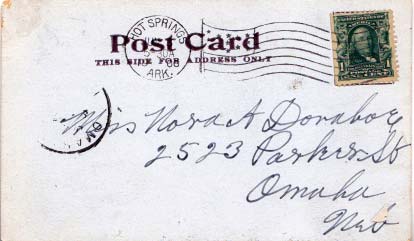 HOT SPRINGS
ARK.
Post Card
THIS SIDE FOR ADDRESS ONLY
1
Miss Nora A
2523 Parker St
Omaha
Neb